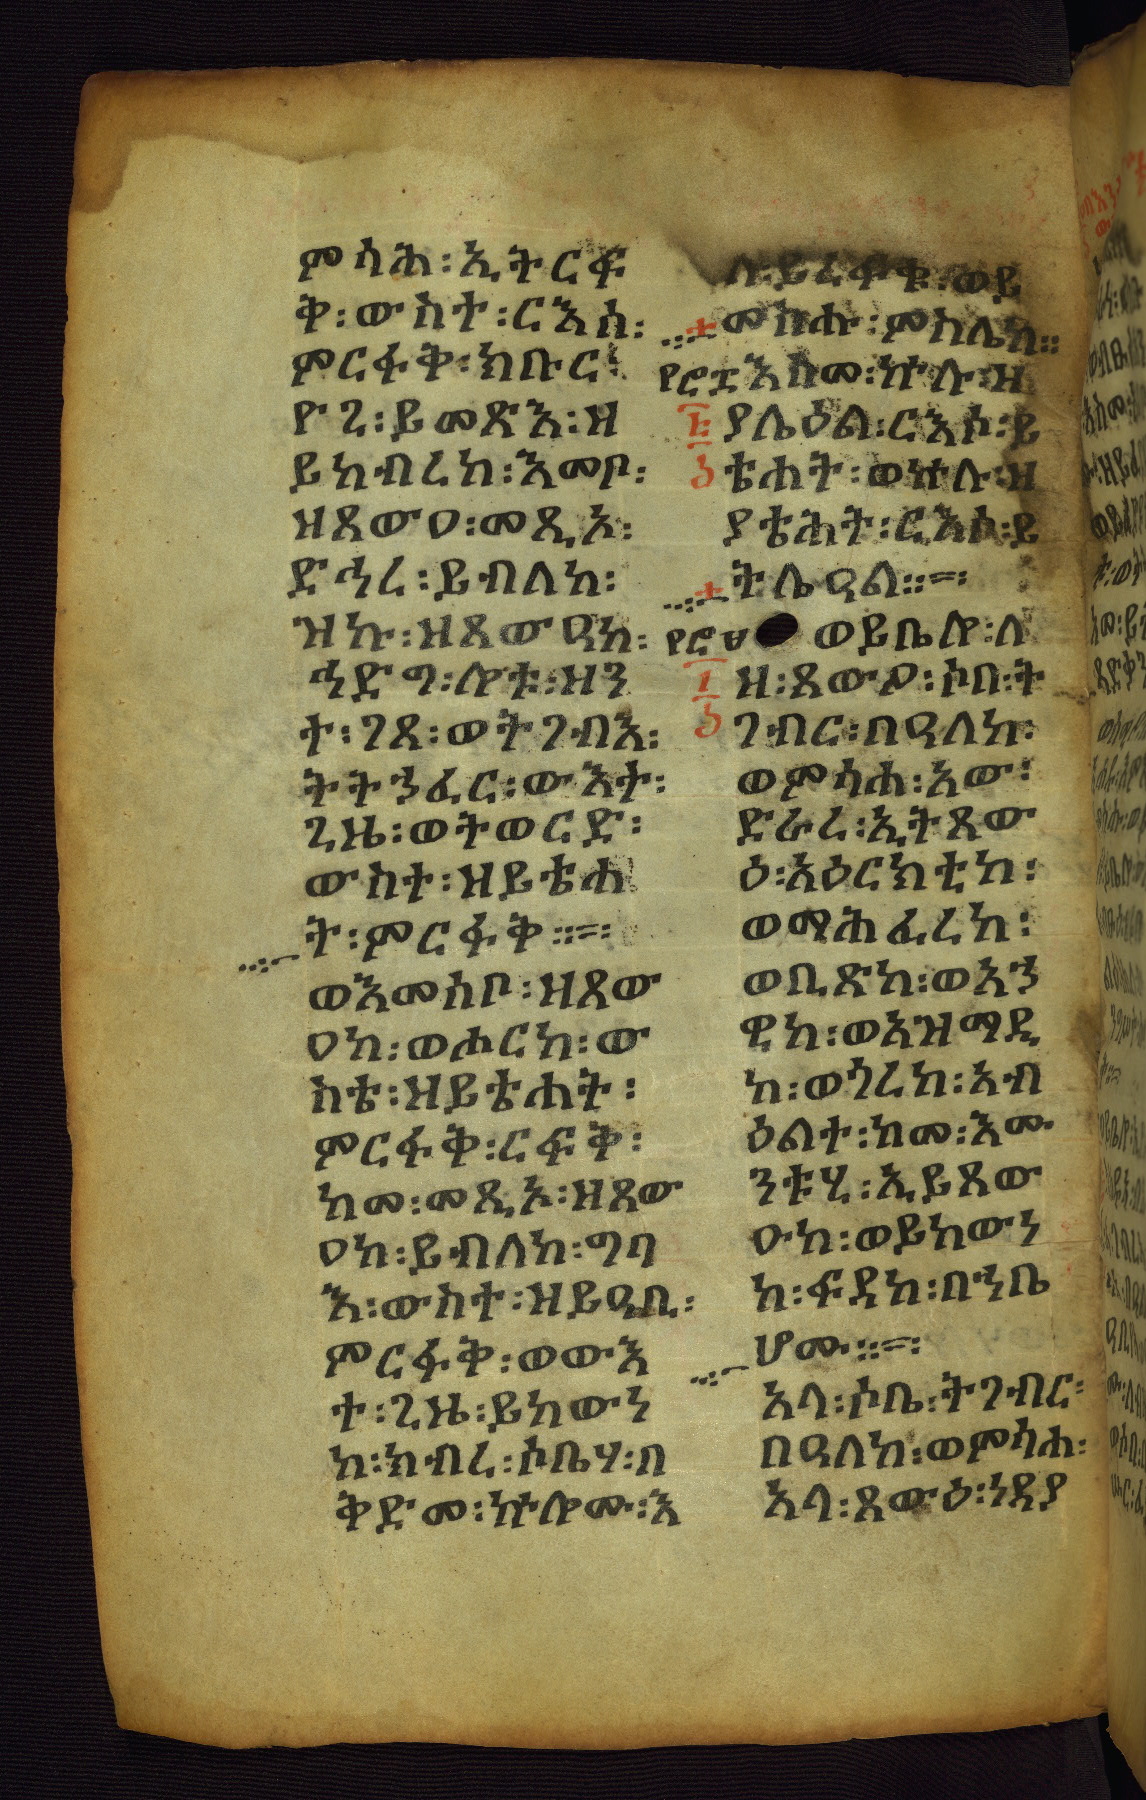 ምሳሕ፡ኢትርፍ
ቅ፡ውስተ፡ርእሰ፡
ምርፋቅ፡ክቡር፡
ዮጊ፡ይመጽእ፡ዘ
ይከብረከ፡እመቦ፡
ዘጸውዐ፡መጺኦ፡
ድኅረ፡ይብለከ፡
ዝኩ፡ዘጸውዓከ፡
ኅድግ፡ሎቱ፡ዝን
ተ፡ገጸ፡ወትገብእ፡
ትትኀፈር፡ውእተ፡
ጊዜ፡ወትወርድ፡
ውስተ፡ዘይቴሐ
ት፡ምርፋቅ።
ወእመሰቦ፡ዘጸው
ዐከ፡ወሖርከ፡ው
ስቴ፡ዘይቴሐት፡
ምርፋቅ፡ርፍቅ፡
ከመ፡መጺኦ፡ዘጸው
ዐከ፡ይብለከ፡ግባ
እ፡ውስተ፡ዘይዔቢ፡
ምርፋቅ፡ወውእ
ተ፡ጊዜ፡ይከውን
ከ፡ክብረ፡ሶቤሃ፡በ
ቅድመ፡ኵሎሙ፡እ
ለ፡ይረፍቁ፡ወይ
መስሑ፡ምስሌከ።
፻፸፯ እስመ፡ኵሉ፡ዘ
ያሌዕል፡ርእሶ፡ይ
ቴሐት፡ወኵሉ፡ዘ
ያቴሕት፡ርእሶ፡ይ
ትሌዓል።
፻፸፰ ወይቤሎ፡ለ
ዘ፡ጸውዖ፡ሶበ፡ት
ገብር፡በዓለከ፡
ወምሳሐ፡አው፡
ድራረ፡ኢትጸው
ዕ፡አዕርክቲከ፡
ወማሕፈረከ፡
ወቢጽከ፡ወአኀ
ዊከ፡ወአዝማዲ
ከ፡ወጎረከ፡አብ
ዕልተ፡ከመ፡እሙ
ንቱሂ፡ኢይጸው
ዑከ፡ወይከውን
ከ፡ፍዳከ፡በኀቤ
ሆሙ።
አላ፡ሶቤ፡ትገብር፡
በዓለከ፡ወምሳሐ፡
አላ፡ጸውዕ፡ነዳያ